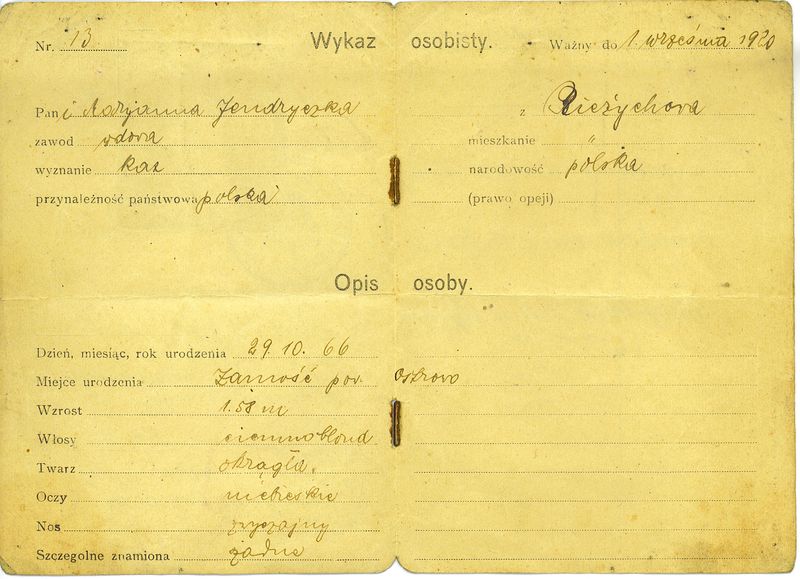 Nr. 13 Wykaz osobisty. Ważny do 1 września 1920
Pani Maryanna Jendryczka z Bieżychowa
zawod wdowa mieszkanie "
wyznanie kat narodowość polska
przynależność państwowa polska (prawo opcji)
Opis osoby.
Dzień, miesiąc, rok urodzenia 29. 10. 66
Miejce urodzenia Zamość pow. Ostrowo
Wzrost 1.58 m
Włosy ciemnoblond
Twarz okrągła.
Oczy niebieskie
Nos zwyczajny
Szczegolne znamiona żadne